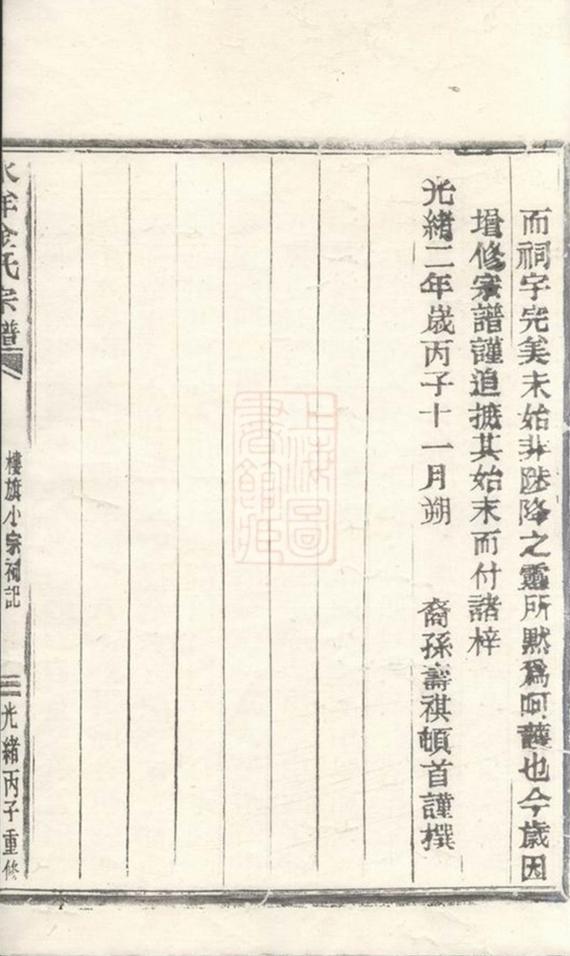 而祠宇完美未始非陟降之靈所默爲呵護也今歲因
增修宗譜謹追摭其始末而付諸梓
光緒二年歲丙子十一月朔 裔孫壽祺頓首謹撰
上海圖書館藏
氏宗譜
樓旗小宗祠記
光緒丙子重修